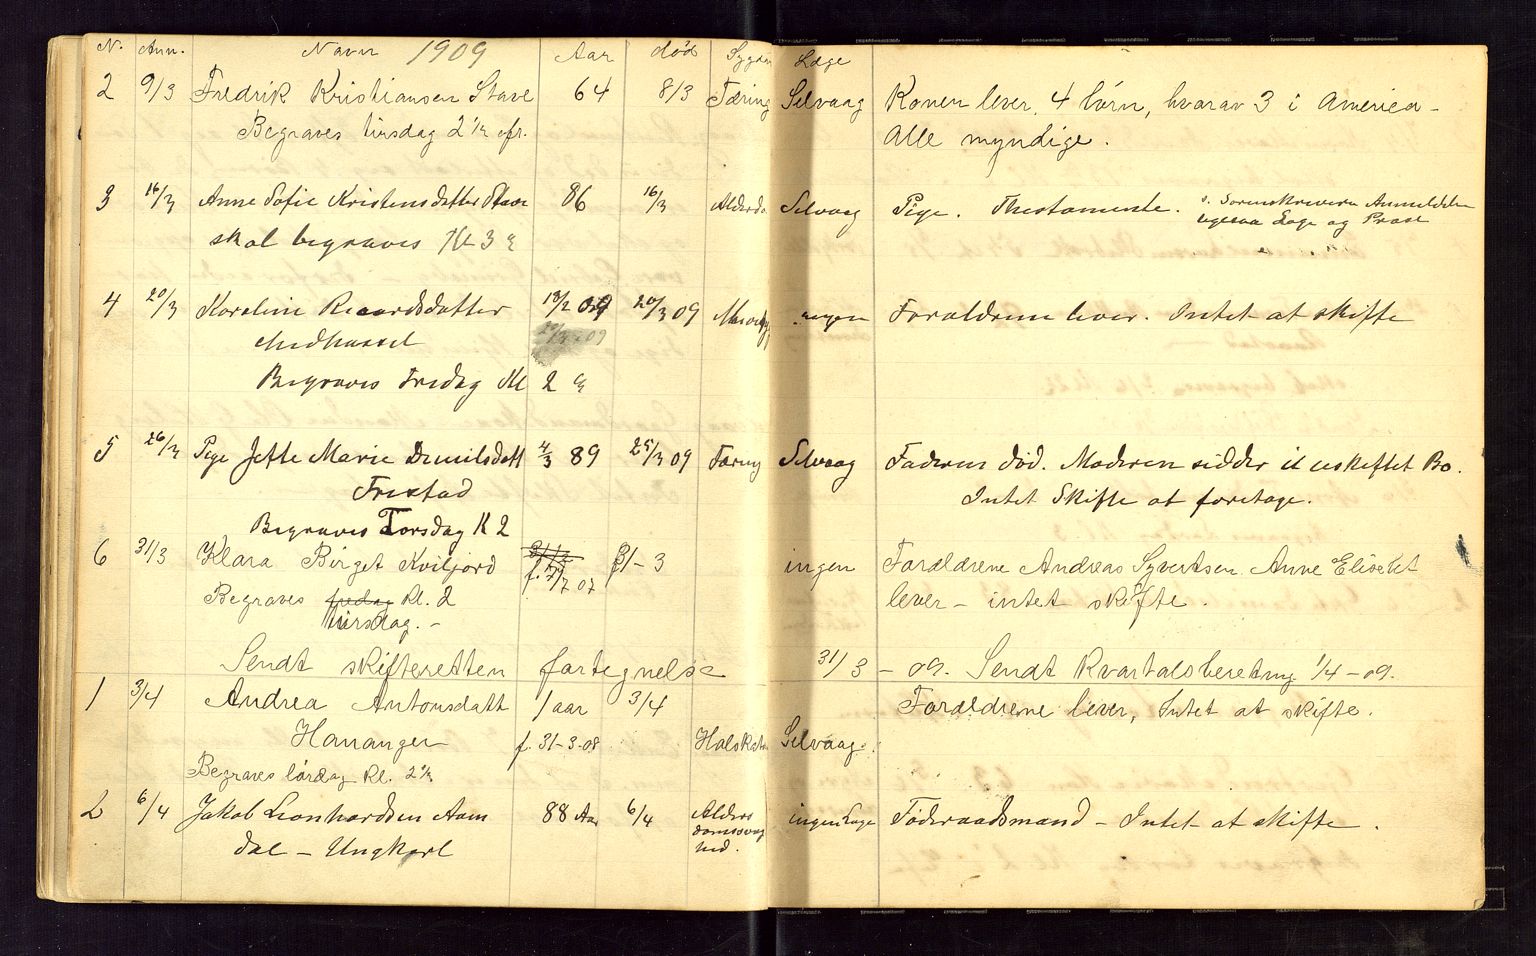 N. Ann. Navn 1909 Aar død Sygdom Læge
2 9/3 Fredrik Kristiansen Stave 64 8/3 Tæring Selvaag Konen lever, 4 børn, hvorav 3 i America -
Begraves tirsdag 2 1/2 efr. Alle myndige.
3 16/3 Anne Sofie Kristensdatter Stave 86 16/3 Alderdo Selvaag Pige. Thestamente. s. Sorenskriveren Anmeldelse
skal begraves Kl 3 e ogsaa Læge og Præst
4 20/3 Karoline Ricardsdatter 18/2 09 20/3 09 ingen Foraldrene lever. Intet at skifte
Midhassel 20/3-09
Begraves Fredag Kl 2 e
5 26/3 Pige Jette Marie Danilsdatt 4/3 89 25/3 09 Tæring Selvaag Faderen død. Moderen sidder i uskiftet Bo.
Frestad Intet Skifte at foretage.
Begraves Torsdag K 2
6 31/3 Klara Birget Kviljord 31/12 31-3 ingen Forældrene Andreas Syvertsen Anne Elisebet
Begraves fredag Kl. 2 f. 7/7 07 lever - intet skifte.
tirsdag. -
Sendt skifteretten fortegnelse 31/3 - 09. Sendt Kvartalsberetning 1/4 - 09.
1 3/4 Andrea Antonsdatt 1 aar 3/4 Forældrene lever, Intet at skifte.
Hananger f. 31-3-08 Halskat Selvaag.
Begraves lørdag Kl. 2 1/2
2 6/4 Jakob Leonhardsen Aam 88 Aar 6/4 Alders ingen Læge Føderaadsmand - Intet at skifte.
dal - Ungkarl domssvag
hed.